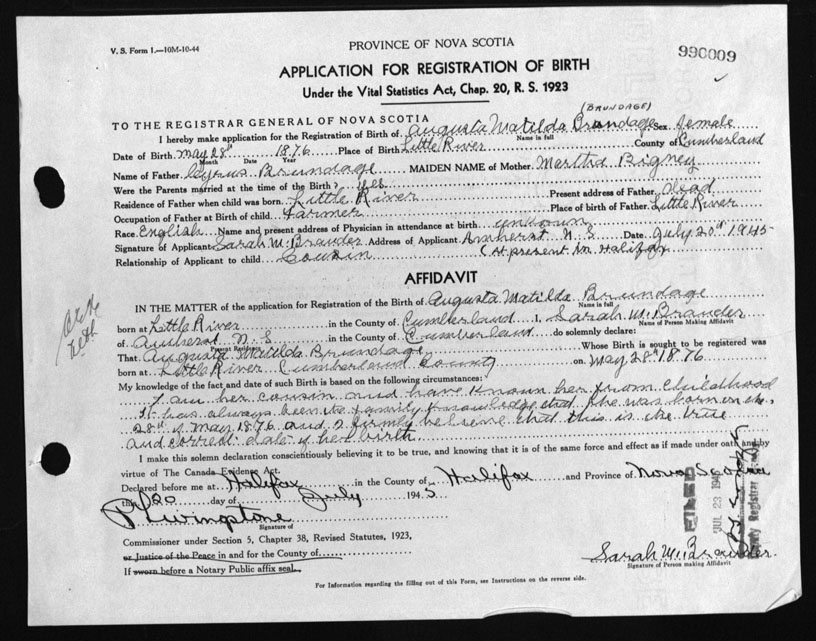 V. S. Form 1.—10M-10-44
PROVINCE OF NOVA SCOTIA
990009
APPLICATION FOR REGISTRATION OF BIRTH
Under the Vital Statistics Act, Chap. 20, R. S. 1923
(BRUNDAGE)
TO THE REGISTRAR GENERAL OF NOVA SCOTIA
I hereby make application for the Registration of Birth of Augusta Matilda Brundage Sex female
Name in full
Date of Birth May 28th 1876 Place of Birth Little River County of Cumberland
Month Date Year
Name of Father Cyrus Brundage MAIDEN NAME of Mother Martha Bigney
Were the Parents married at the time of the Birth? yes
Residence of Father when child was born Little River Present address of Father Dead
Occupation of Father at Birth of child farmer Place of birth of Father Little River
Race English Name and present address of Physician in attendance at birth unknown
Signature of Applicant Sarah M. Brander Address of Applicant Amherst N. S Date July 20th 1945
Relationship of Applicant to child Cousin (At present in Halifax
AFFIDAVIT
IN THE MATTER of the application for Registration of the Birth of Augusta Matilda Brundage
Name in full
born at Little River in the County of Cumberland I, Sarah M. Brander
Name of Person Making Affidavit
of Amherst N. S in the County of Cumberland do solemnly declare:
Present Residence
That Augusta Matilda Brundage Whose Birth is sought to be registered was
born at Little River Cumberland County on May 28th 1876
My knowledge of the fact and date of such Birth is based on the following circumstances:
I am her cousin and have known her from childhood
It has always been family knowledge that she was born on the
28th of May 1876 and I firmly believe that this is the true
and correct date of her birth
I make this solemn declaration conscientiously believing it to be true, and knowing that it is of the same force and effect as if made under oath and by
virtue of The Canada Evidence Act.
Declared before me at Halifax in the County of Halifax and Province of Nova Scotia
this 20 day of July 1945
P Livingstone
Signature of
Commissioner under Section 5, Chapter 38, Revised Statutes, 1923,
or Justice of the Peace in and for the County of
If sworn before a Notary Public affix seal.
FILED
JUL 23 194
Deputy Registrar
Sarah M. Brander
Signature of Person making Affidavit
For Information regarding the filling out of this Form, see Instructions on the reverse side.